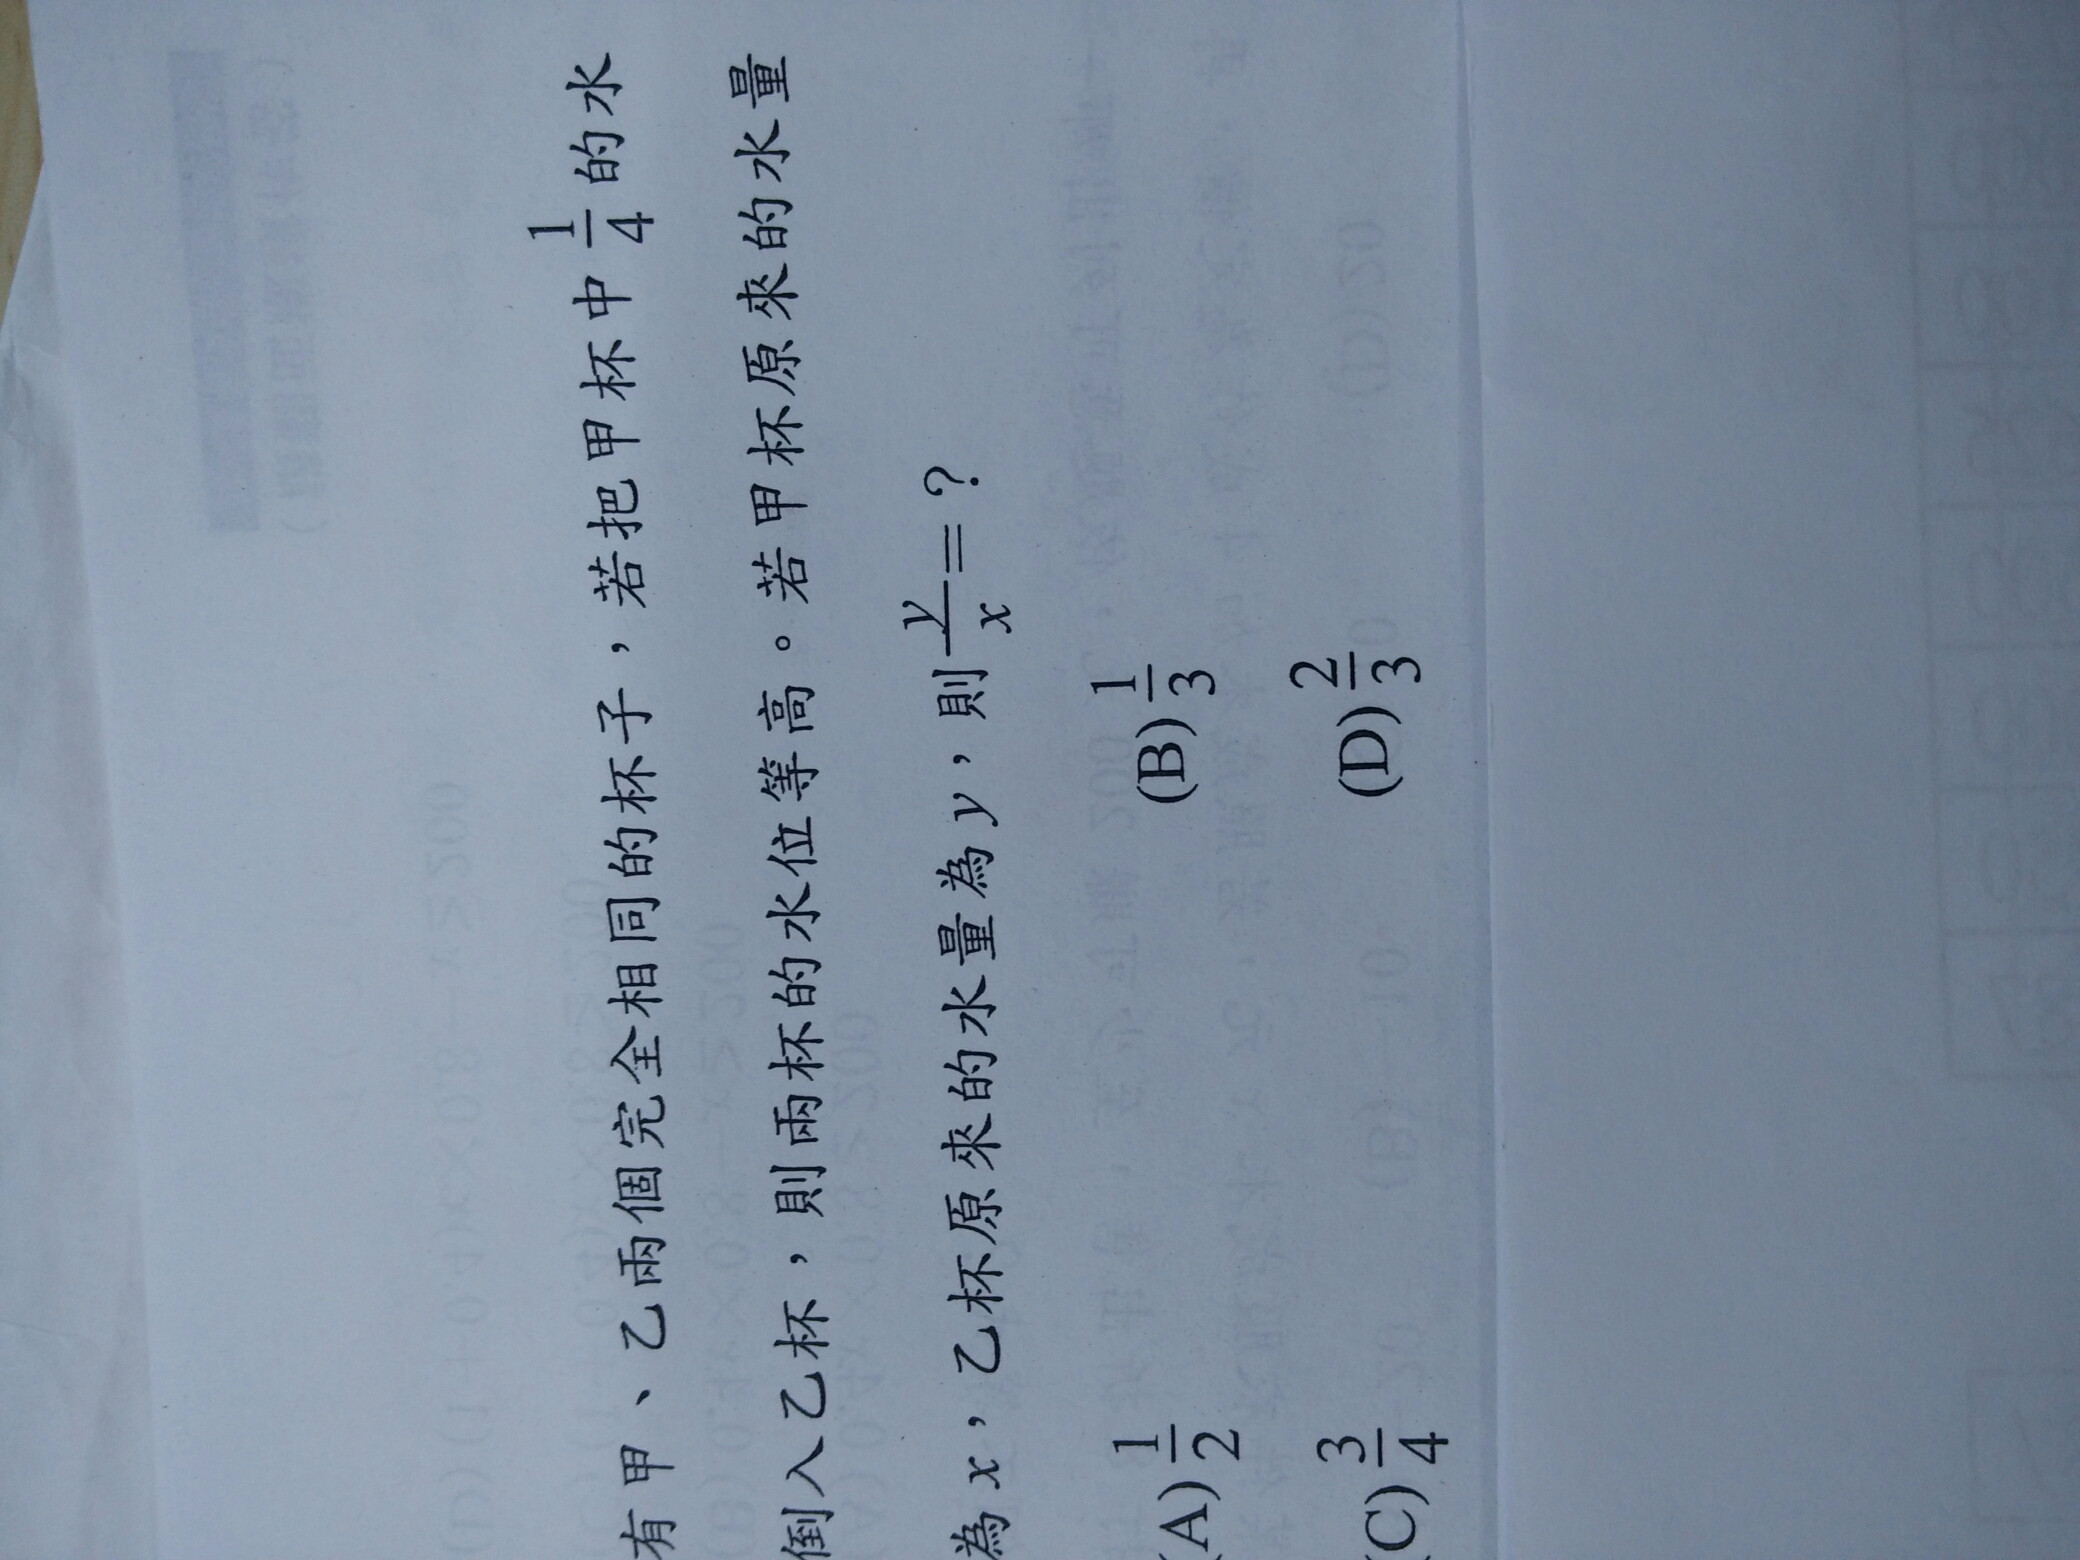 有甲、乙兩個完全相同的杯子，若把甲杯中 1/4 的水
倒入乙杯，則兩杯的水位等高。若甲杯原來的水量
為 x，乙杯原來的水量為 y，則 y/x = ?
(A) 1/2 (B) 1/3
(C) 3/4 (D) 2/3